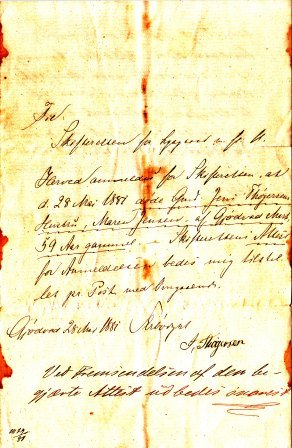 Til
Skifteretten for
Herved anmeldes for Skifteretten, at
d. 28 Mai 1881 døde Gmd. Jens Thøgersens
Hustru, Maren Jensen, af Gjødvad Mark,
59 Aar gammel. — Skifterettens Attest
for Anmeldelsen bedes mig tilstil-
let pr. Post med
Gjødvad 28 Mai 1881 Ærbødigst
J. Thøgersen
Ved Fremsendelsen af den be-
gjærte Attest udbedes